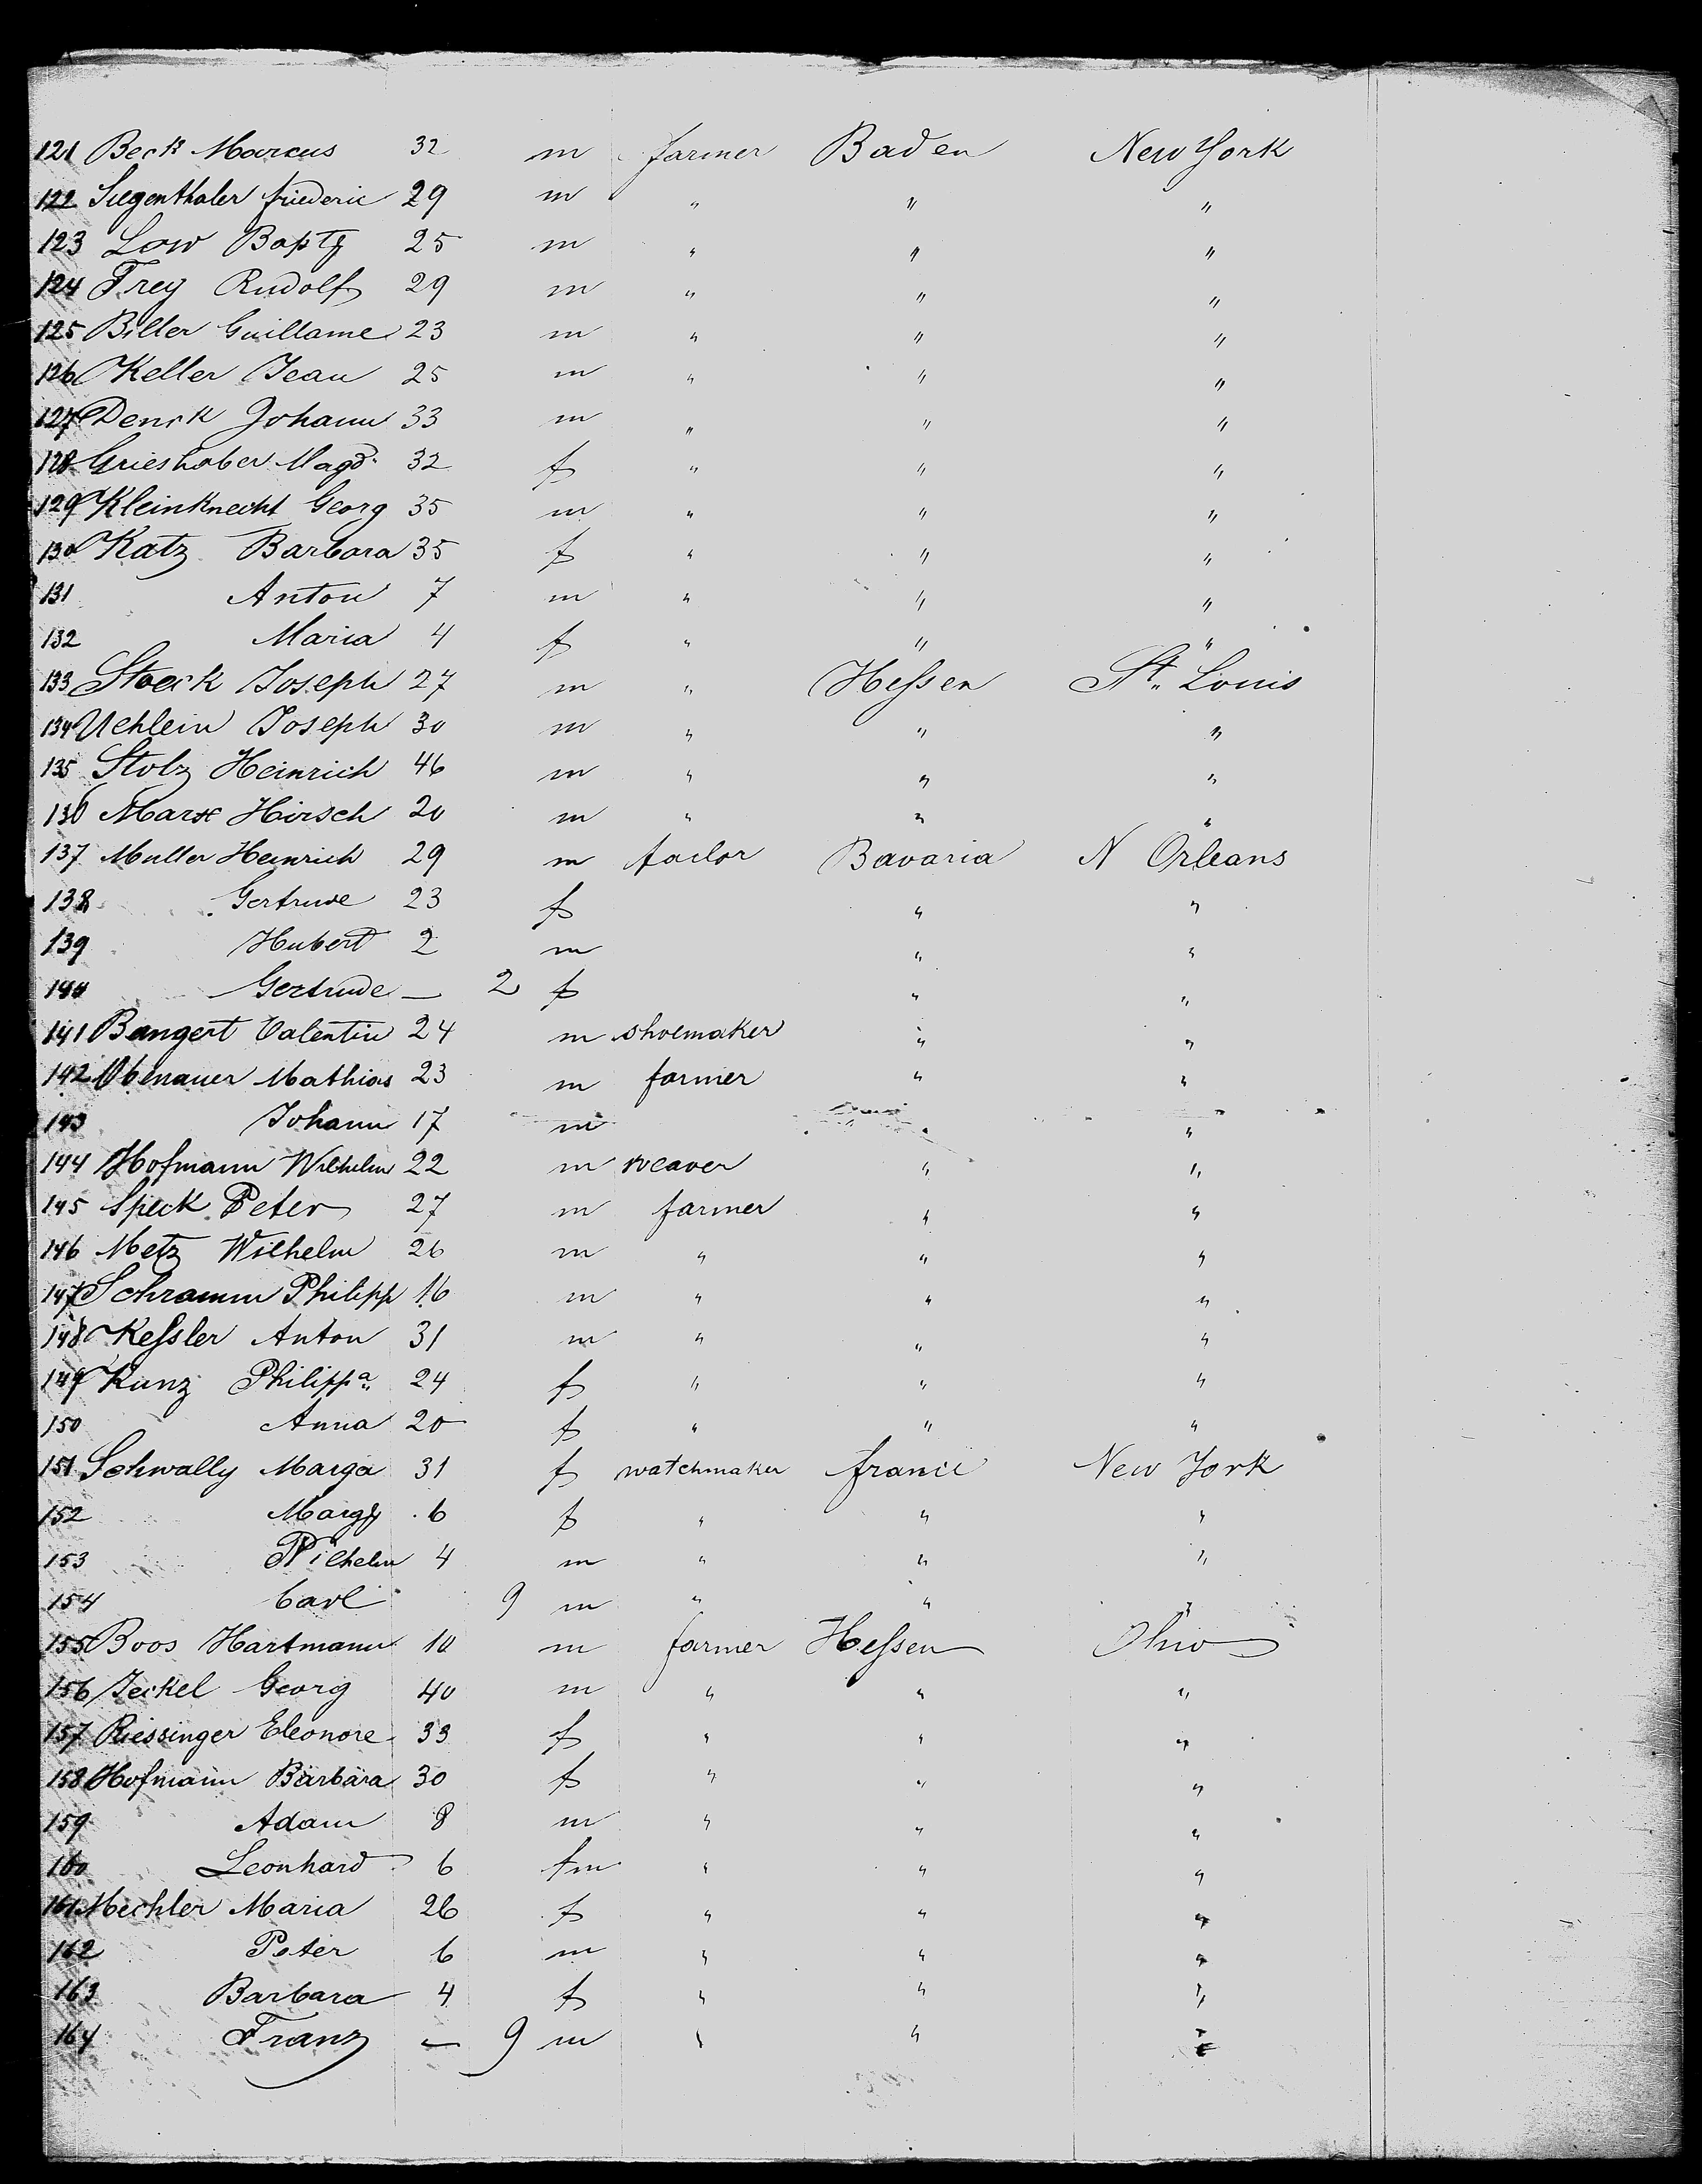 121 Beck Marcus 32 m farmer Baden New York
122 Siegenthaler friederic 29 m " " "
123 Low Baptz 25 m " " "
124 Frey Rudolf 29 m " " "
125 Biller Guillame 23 m " " "
126 Keller Jean 25 m " " "
127 Denck Johann 33 m " " "
128 Grieshaber Magd. 32 f " " "
129 Kleinknecht Georg 35 m " " "
130 Katz Barbara 35 f " " "
131 Anton 7 m " " "
132 Maria 4 f " " "
133 Stoeck Joseph 27 m " Hessen St. Louis
134 Uehlein Joseph 30 m " " "
135 Stolz Heinrich 46 m " " "
136 Marx Hirsch 20 m " " "
137 Muller Heinrich 29 m tailor Bavaria N Orleans
138 Gertrude 23 f " "
139 Hubert 2 m " "
140 Gertrude — 2 f " "
141 Bangert Valentin 24 m shoemaker " "
142 Obenauer Mathias 23 m farmer " "
143 Johann 17 m "
144 Hofmann Wilhelm 22 m weaver " "
145 Speck Peter 27 m farmer " "
146 Metz Wilhelm 26 m " " "
147 Schramm Philipp 16 m " " "
148 Kessler Anton 31 m " " "
149 Kunz Philippa 24 f " " "
150 Anna 20 f " " "
151 Schwally Marga 31 f watchmaker france New York
152 6 f " " "
153 Wilhelm 4 m " " "
154 Carl 9 m " " "
155 Boos Hartmann 10 m farmer Hessen Ohio
156 Jeckel Georg 40 m " " "
157 Riessinger Eleonore 33 f " " "
158 Hofmann Barbara 30 f " " "
159 Adam 8 m " " "
160 Leonhard 6 fm " " "
161 Mechler Maria 26 f " " "
162 Peter 6 m " " "
163 Barbara 4 f " " "
164 Franz — 9 m " " "